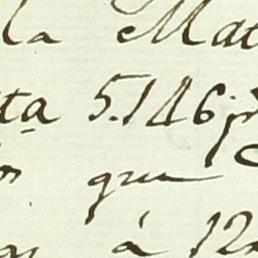 la Mat
ta 5.146 p
que
à 12